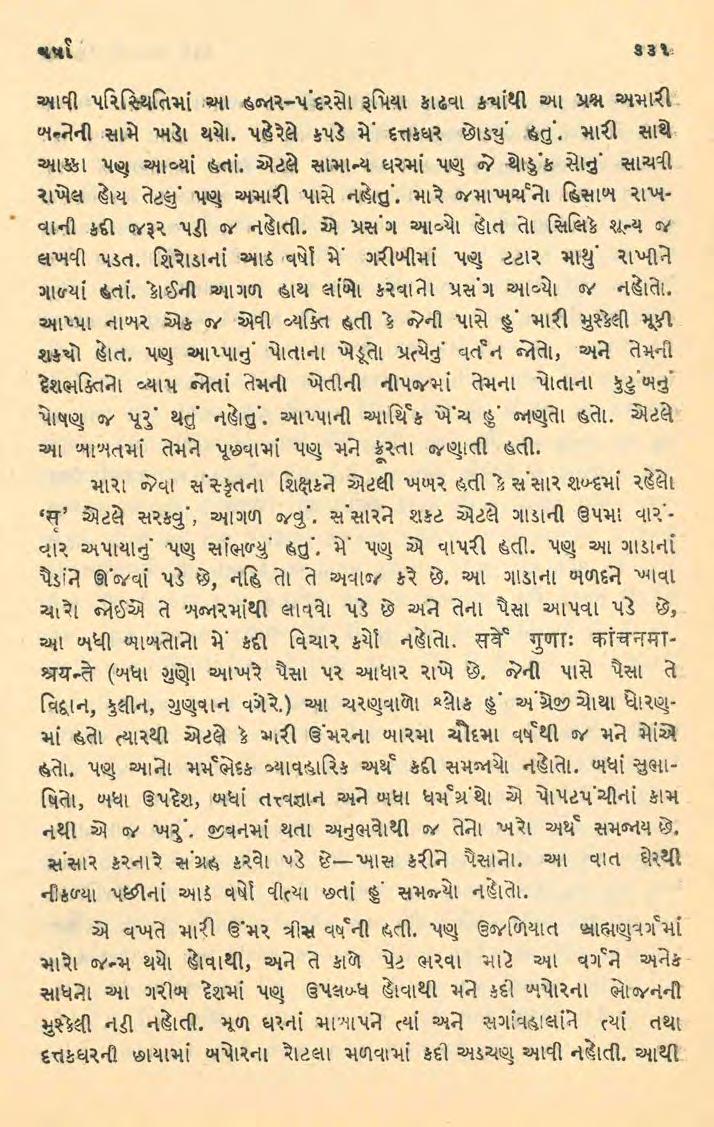 વર્ધા ૩૩૧
આવી પરિસ્થિતિમાં આ હજાર-પંદરસો રૂપિયા કાઢવા ક્યાંથી આ પ્રશ્ન અમારી
બન્નેની સામે ખડો થયો. પહેરેલે કપડે મેં દત્તકઘર છોડ્યું હતું. મારી સાથે
આક્કા પણ આવ્યાં હતાં. એટલે સામાન્ય ઘરમાં પણ જે થોડુંક સોનું સાચવી
રાખેલ હોય તેટલું પણ અમારી પાસે નહોતું. મારે જમાખર્ચનો હિસાબ રાખ-
વાની કદી જરૂર પડી જ નહોતી. એ પ્રસંગ આવ્યો હોત તો સિલિકે શૂન્ય જ
લખવી પડત. શિરોડાનાં આઠ વર્ષો મેં ગરીબીમાં પણ ટટાર માથું રાખીને
ગાળ્યાં હતાં. કોઈની આગળ હાથ લાંબો કરવાનો પ્રસંગ આવ્યો જ નહોતો.
આપ્પા નાબર એક જ એવી વ્યક્તિ હતી કે જેની પાસે હું મારી મુશ્કેલી મૂકી
શક્યો હોત. પણ આપ્પાનું પોતાના ખેડૂતો પ્રત્યેનું વર્તન જોતો, અને તેમની
દેશભક્તિનો વ્યાપ જોતાં તેમની ખેતીની નીપજમાં તેમના પોતાના કુટુંબનું
પોષણ જ પૂરું થતું નહોતું. આપ્પાની આર્થિક ખેંચ હું જાણતો હતો. એટલે
આ બાબતમાં તેમને પૂછવામાં પણ મને ક્રૂરતા જણાતી હતી.
મારા જેવા સંસ્કૃતના શિક્ષકને એટલી ખબર હતી કે સંસાર શબ્દમાં રહેલો
‘સૃ’ એટલે સરકવું, આગળ જવું. સંસારને શકટ એટલે ગાડાની ઉપમા વારં-
વાર અપાયાનું પણ સાંભળ્યું હતું. મેં પણ એ વાપરી હતી. પણ આ ગાડાનાં
પૈડાંને ઊંજવાં પડે છે, નહિ તો તે અવાજ કરે છે. આ ગાડાના બળદને ખાવા
ચારો જોઈએ તે બજારમાંથી લાવવો પડે છે અને તેના પૈસા આપવા પડે છે,
આ બધી બાબતોનો મેં કદી વિચાર કર્યો નહોતો. सर्वे गुणाः कांचनमा-
श्रयन्ते (બધા ગુણો આખરે પૈસા પર આધાર રાખે છે. જેની પાસે પૈસા તે
વિદ્વાન, કુલીન, ગુણવાન વગેરે.) આ ચરણવાળો શ્લોક હું અંગ્રેજી ચોથા ધોરણ-
માં હતો ત્યારથી એટલે કે મારી ઉંમરના બારમા ચૌદમા વર્ષથી જ મને મોંએ
હતો. પણ આનો મર્મભેદક વ્યાવહારિક અર્થ કદી સમજાયો નહોતો. બધાં સુભા-
ષિતો, બધા ઉપદેશ, બધાં તત્ત્વજ્ઞાન અને બધા ધર્મગ્રંથો એ પોપટપંચીનાં કામ
નથી એ જ ખરું. જીવનમાં થતા અનુભવોથી જ તેનો ખરો અર્થ સમજાય છે.
સંસાર કરનારે સંગ્રહ કરવો પડે છે—ખાસ કરીને પૈસાનો. આ વાત ઘેરથી
નીકળ્યા પછીનાં આઠ વર્ષો વીત્યા છતાં હું સમજ્યો નહોતો.
એ વખતે મારી ઉંમર ત્રીસ વર્ષની હતી. પણ ઉજળિયાત બ્રાહ્મણવર્ગમાં
મારો જન્મ થયો હોવાથી, અને તે કાળે પેટ ભરવા માટે આ વર્ગને અનેક
સાધનો આ ગરીબ દેશમાં પણ ઉપલબ્ધ હોવાથી મને કદી બપોરના ભોજનની
મુશ્કેલી નડી નહોતી. મૂળ ઘરનાં માબાપને ત્યાં અને સગાંવહાલાંને ત્યાં તથા
દત્તકઘરની છાયામાં બપોરના રોટલા મળવામાં કદી અડચણ આવી નહોતી. આથી